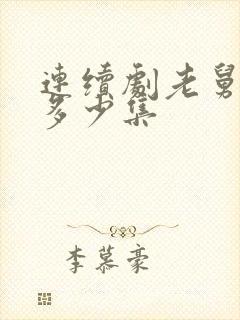 連續劇老舅
多少集
李慕豪